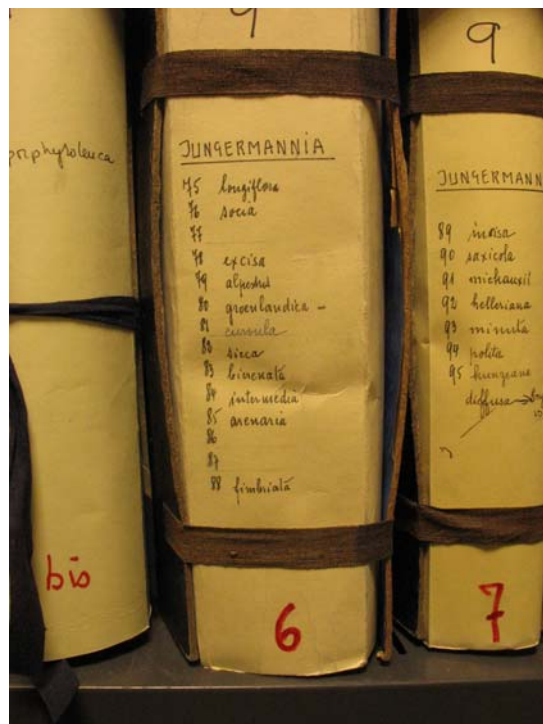 porphyroleuca
bis
9
JUNGERMANNIA
75 longiflora
76 socia
77
78 excisa
79 alpestris
80 groenlandica –
81 cursula
82 sicca
83 bicrenata
84 intermedia
85 arenaria
86
87
88 fimbriata
6
9
JUNGERMANN
89 incisa
90 saxicola
91 michauxii
92 helleriana
93 minuta
94 polita
95 kunzeana
diffusa →
7